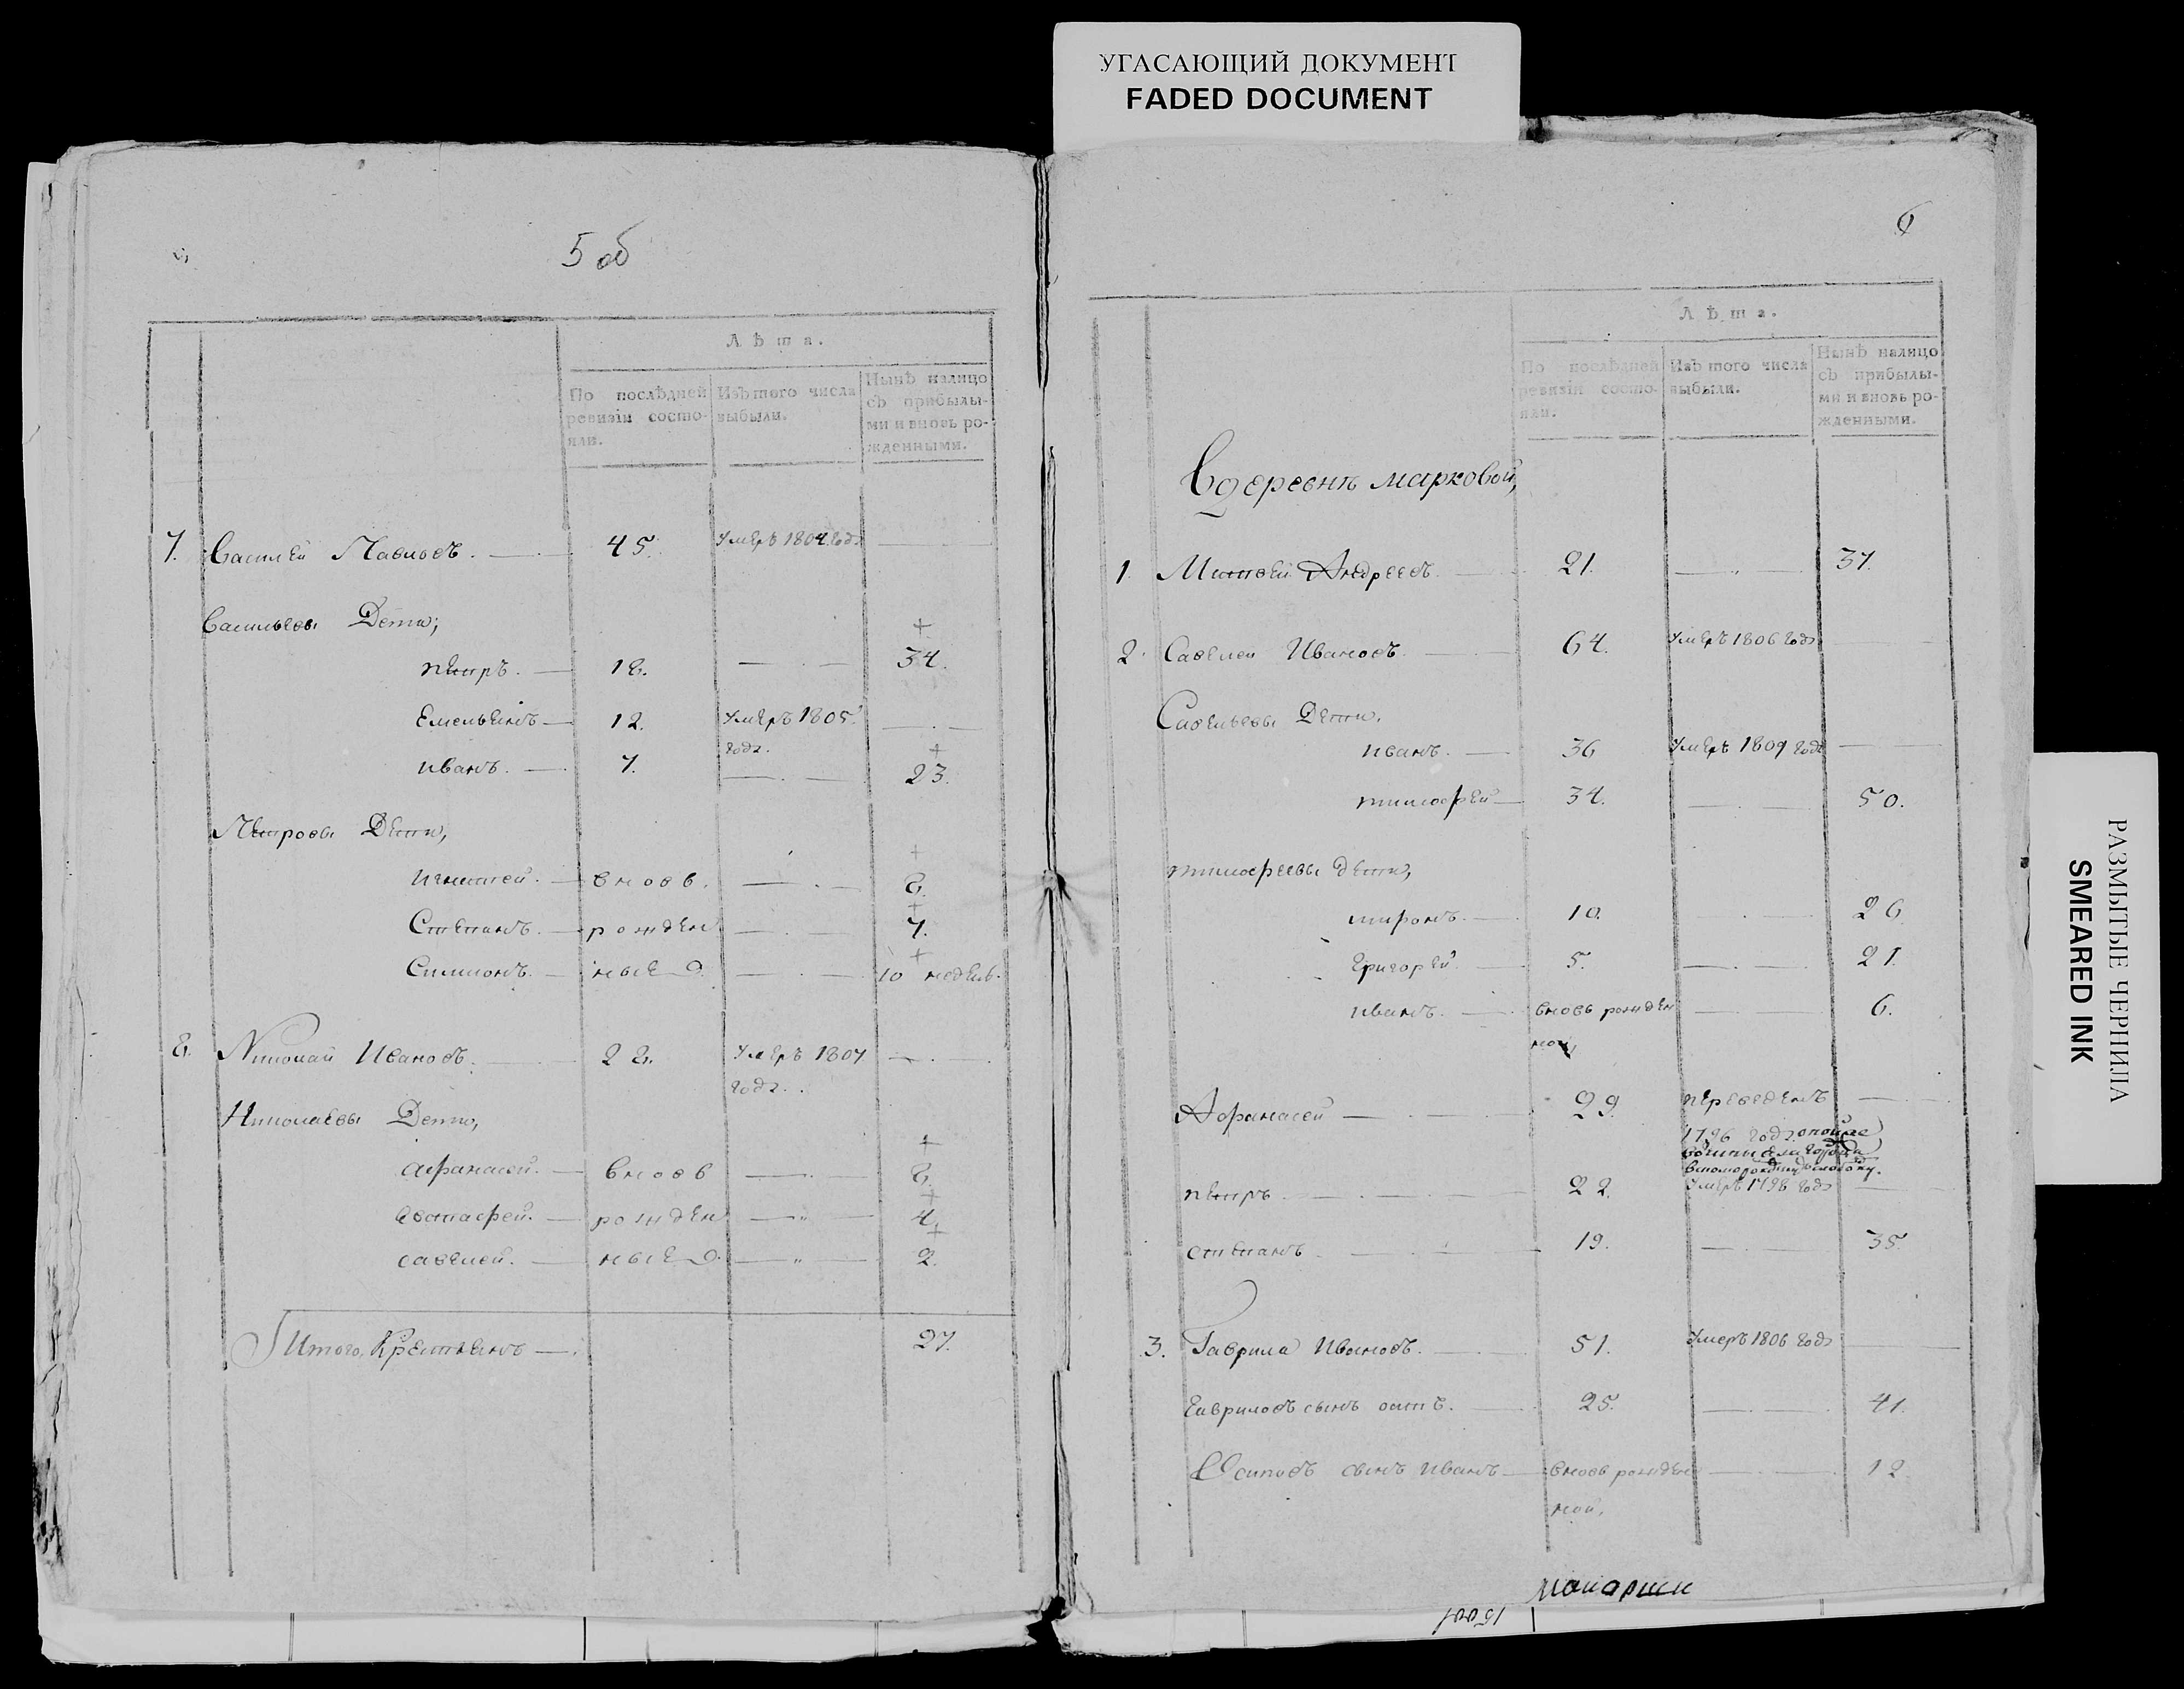 УГАСАЮЩИЙ ДОКУМЕНТ
FADED DOCUMENT
5 об
Лѣта.
По послѣдней ревизіи состояли.
Изъ того числа выбыли.
Нынѣ налицо съ прибылыми и вновь рожденными.
7. Василей Павловъ. 45. Умеръ 1804 года
Васильевы Дети;
петръ. 18. 34.
Емельянъ 12. Умеръ 1805 года.
иванъ. 7. 23.
Петровы Дети,
игнатей. вновь 8.
Степанъ. рожден 7.
Симионъ. ные 10 недель.
8. Николай Ивановъ. 28. Умеръ 1807 года.
Николаевы Дети,
афанасей. вновь 8.
евстафей. рожден 4.
савелей. ные 2.
Итого, Крестьянъ 27.
6
Лѣта.
По послѣдней ревизіи состояли.
Изъ того числа выбыли.
Нынѣ налицо съ прибылыми и вновь рожденными.
Вдеревнѣ марковой,
1. Матвей Андреевъ. 21. 37.
2. Савелей Ивановъ. 64. Умеръ 1806 года
Савельевы Дети.
иванъ. 36 Умеръ 1809 года
тимофей 34. 50.
тимофеевы дети,
миронъ. 10. 26.
григорей. 5. 21.
иванъ. вновь рожден 6.
ной,
Афанасей 29. переведенъ
1796 года
петръ. 22. Умеръ 1798 года
степанъ 19. 35.
3. Гаврила Ивановъ. 51. Умеръ 1806 года
Гавриловъ сынъ осипъ. 25. 41.
Осиповъ сынъ Иванъ вновь рожден 12.
ной,
РАЗМЫТЫЕ ЧЕРНИЛА
SMEARED INK